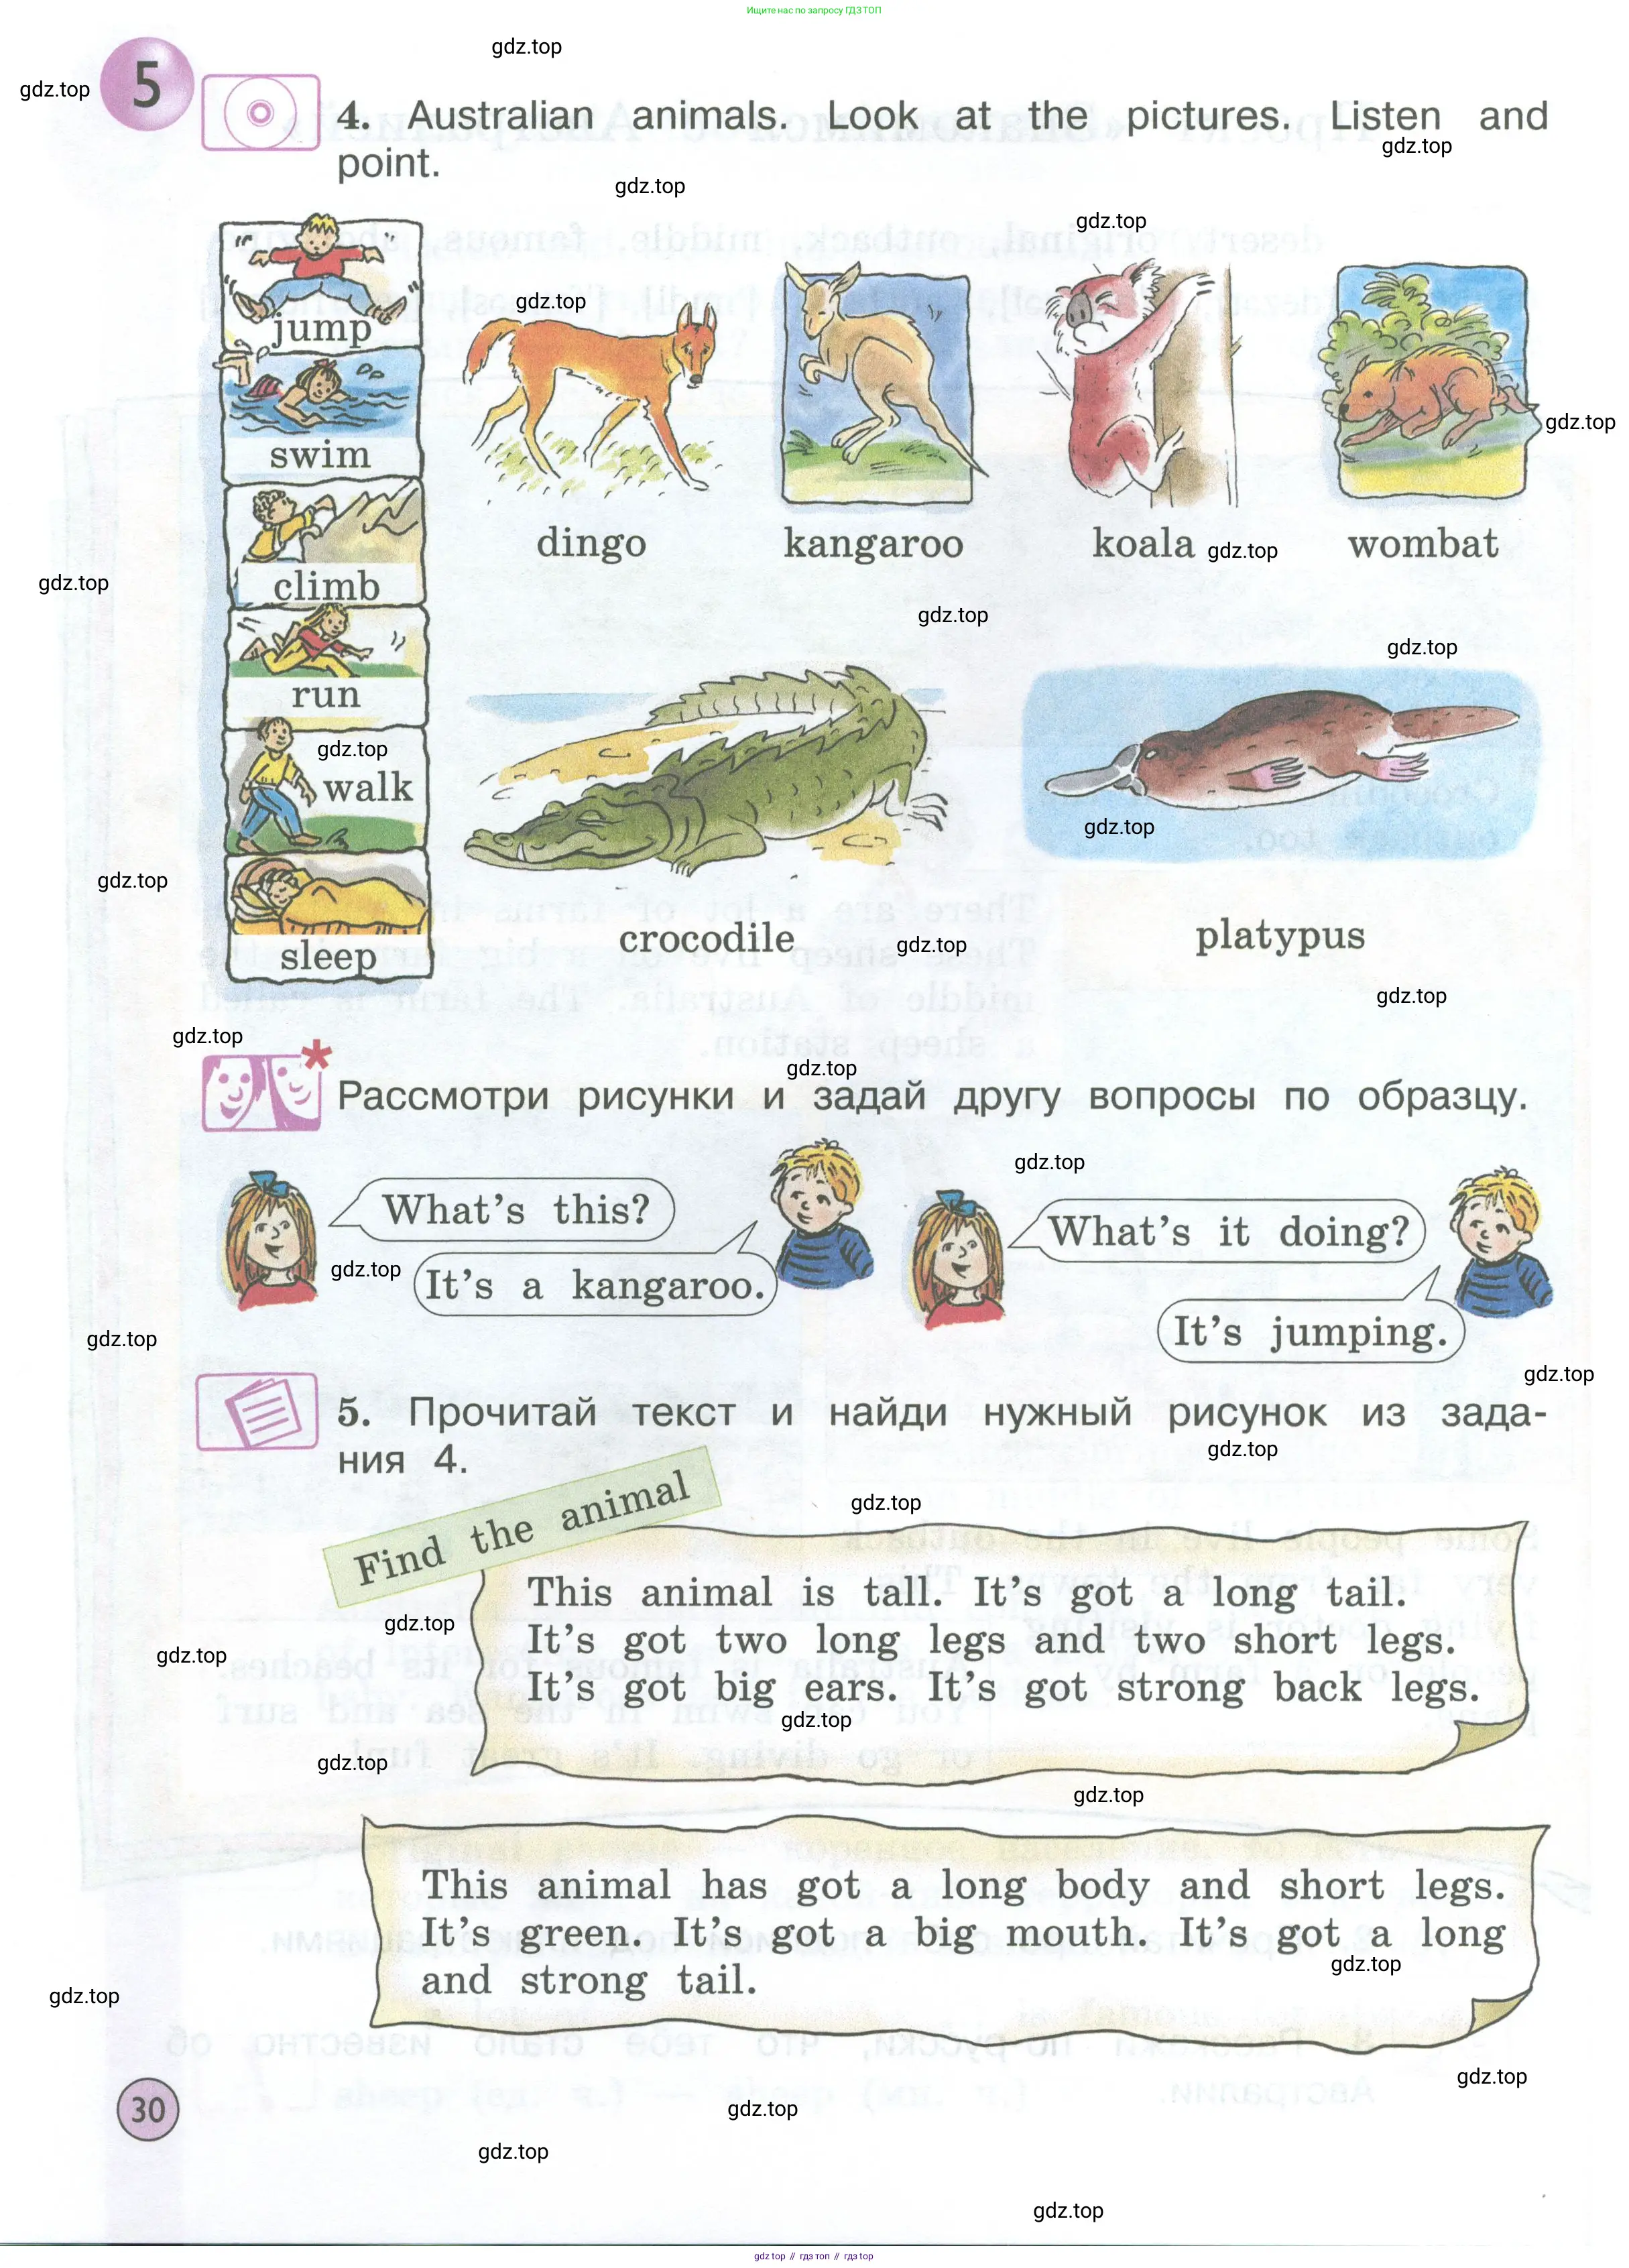 Ищите нас по запросу ГДЗ ТОП
gdz.top
5
gdz.top
4. Australian animals. Look at the pictures. Listen and
gdz.top
point.
gdz.top
gdz.top
jump
swim
climb
run
walk
sleep
gdz.top
gdz.top
dingo
kangaroo
koala
gdz.top
wombat
gdz.top
gdz.top
gdz.top
gdz.top
gdz.top
gdz.top
crocodile
gdz.top
platypus
gdz.top
gdz.top
gdz.top
*
Рассмотри рисунки и задай другу вопросы по образцу.
gdz.top
What's this?
It's a kangaroo.
What's it doing?
It's jumping.
gdz.top
gdz.top
gdz.top
5. Прочитай текст и найди нужный рисунок из зада-
ния 4.
gdz.top
gdz.top
Find the animal
This animal is tall. It's got a long tail.
It's got two long legs and two short legs.
It's got big ears. It's got strong back legs.
gdz.top
gdz.top
gdz.top
gdz.top
gdz.top
This animal has got a long body and short legs.
It's green. It's got a big mouth. It's got a long
and strong tail.
gdz.top
gdz.top
gdz.top
30
gdz.top
gdz.top
gdz.top
gdz top // гдз топ // гдз top